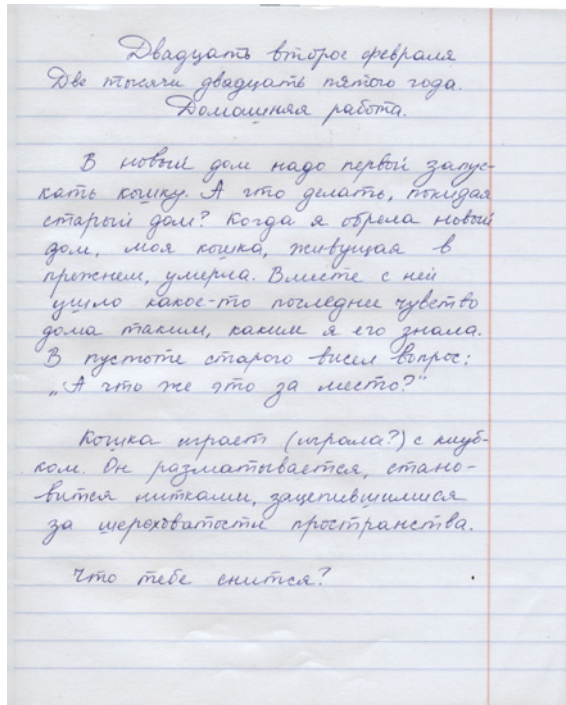 Двадцать второе февраля
Две тысячи двадцать пятого года.
Домашняя работа.
В новый дом надо первой запус-
кать кошку. А что делать, покидая
старый дом? Когда я обрела новый
дом, моя кошка, живущая в
прежнем, умерла. Вместе с ней
ушло какое-то последнее чувство
дома таким, каким я его знала.
В пустоте старого висел вопрос:
„А что же это за место?“
Кошка играет (играла?) с клуб-
ком. Он разматывается, стано-
вится нитками, зацепившимися
за шероховатости пространства.
Что тебе снится?